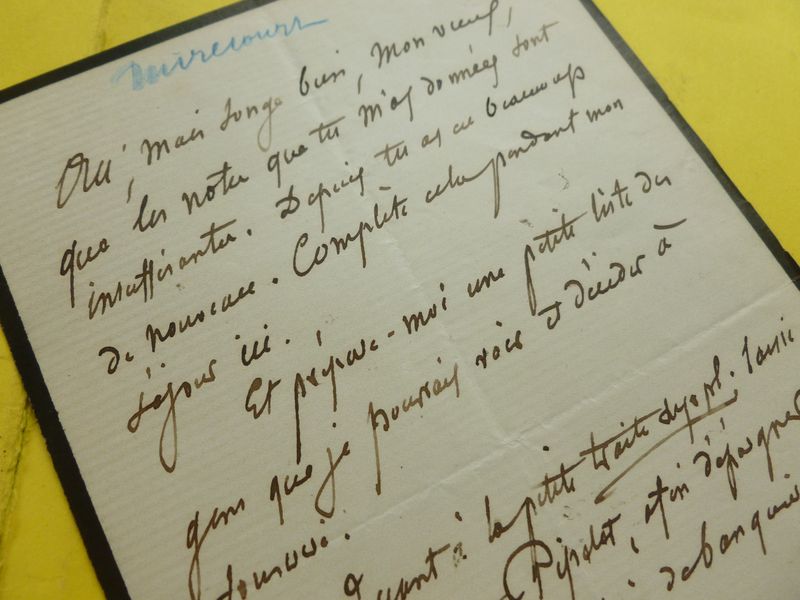 Mirecourt
Oui, mais songe bien, mon vieux,
que les notes que tu m'as données sont
insuffisantes. Depuis tu as eu beaucoup
de nouveau. Complète cela pendant mon
séjour ici.
Et prépare-moi une petite liste des
gens que je pourrais voir et décider à
souscrire.
Quant à la petite traite suppl.
Pipelet, afin d'épargner
de banquier